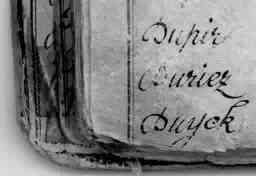 Dupir
Duriez
Duyck